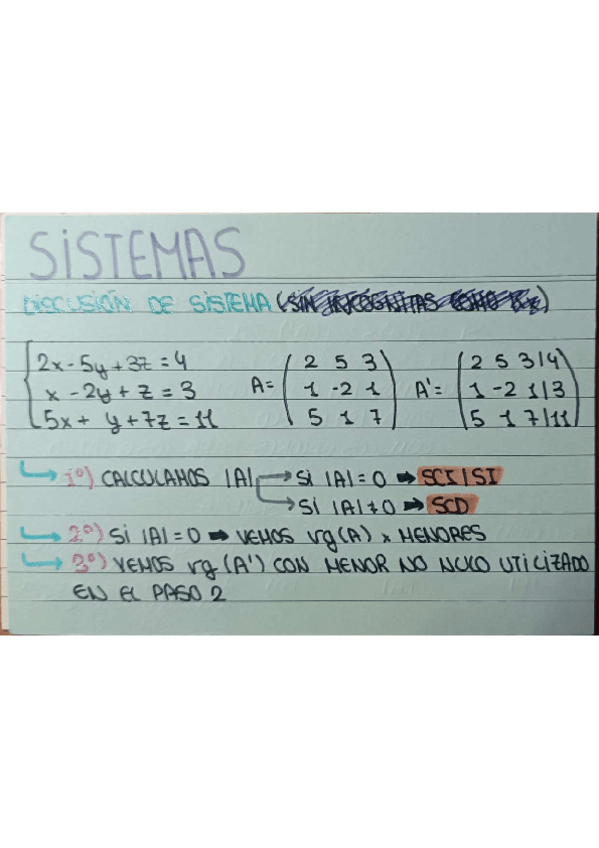 SISTEMAS
DISCUSIÓN DE SISTEMA (SIN INCOGNITAS COMO)
2x-5y+3z=4
x-2y+z=3
5x+y+7z=11
A= ( 2 5 3
1 -2 1
5 1 7 )
A'= ( 2 5 3|4
1 -2 1|3
5 1 7|11 )
1º) CALCULAMOS |A| → Si |A|=0 ➡ SCI/SI
→ Si |A|≠0 ➡ SCD
2º) Si |A|=0 ➡ VEMOS rg(A) x MENORES
3º) VEMOS rg(A') CON MENOR NO NULO UTILIZADO
EN EL PASO 2